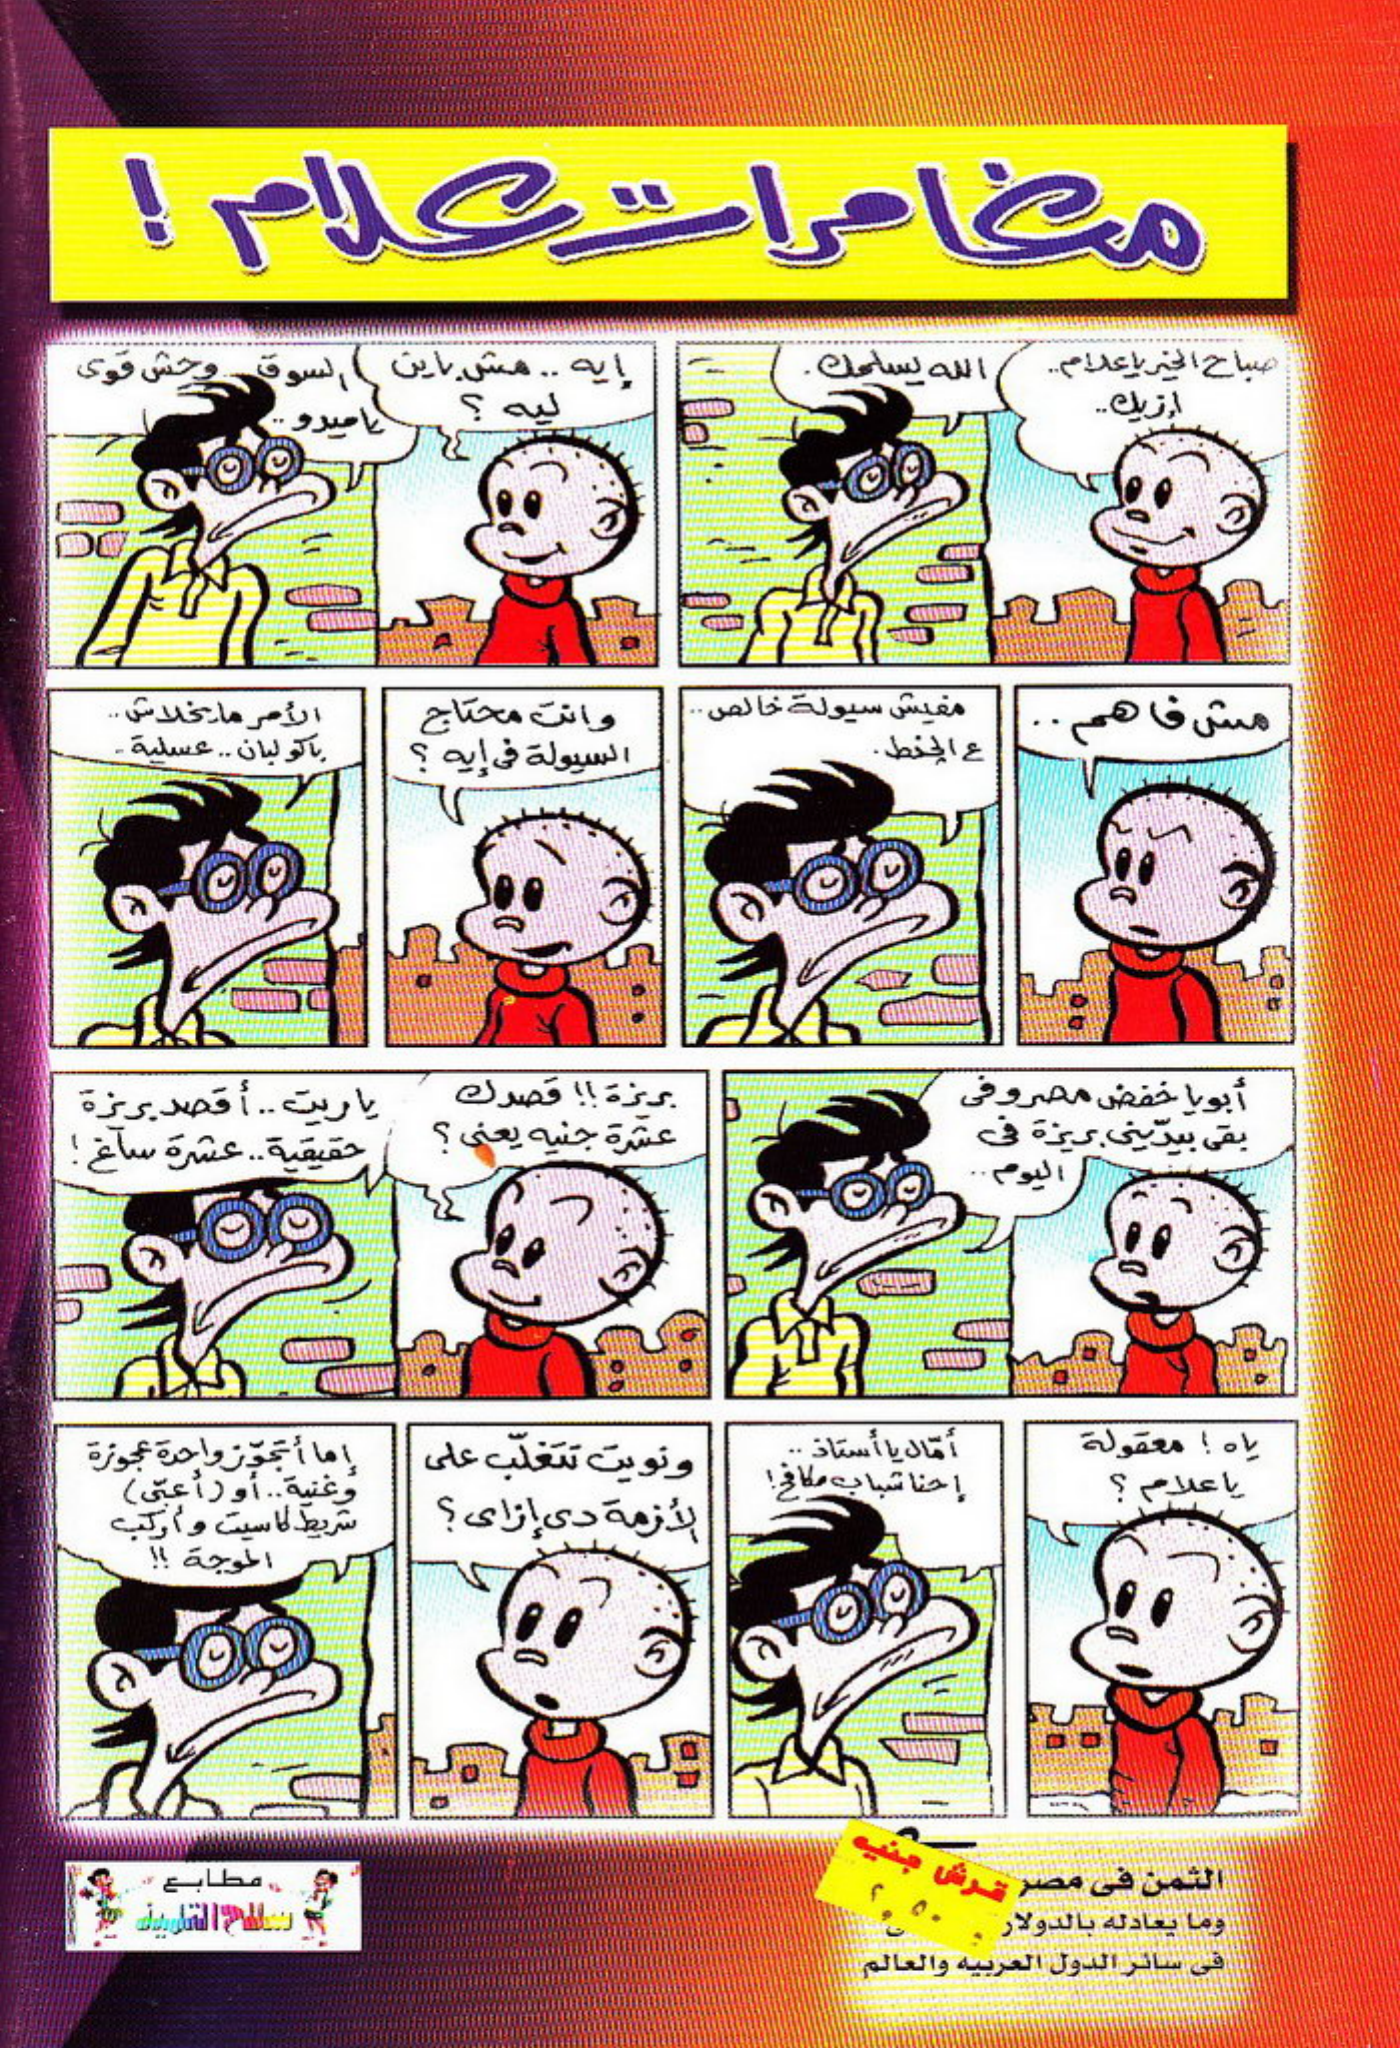 مغامرات علام !
صباح الخير يا علام..
إزيك..
الله يسلمك.
إيه .. مش باين
ليه ؟
السوق .. وحش قوى
يا ميدو ..
مش فاهم ..
مفيش سيولة خالص..
ع الجنط.
وانت محتاج
السيولة فى إيه ؟
الأمر ما يخلاش ..
باكو لبان .. عسلية .
أبويا خفض مصروفى
بقى بيدّينى بريزة فى
اليوم ..
بريزة !! قصدك
عشرة جنيه يعنى ؟
ياريت .. أقصد بريزة
حقيقية .. عشرة ساغ !
ياه ! معقولة
يا علام ؟
أمّال يا أستاذ ..
إحنا شباب مكافح !
ونويت تتغلّب على
الأزمة دى إزاى ؟
إما أتجوّز واحدة عجوزة
وغنية .. أو (أعبّى)
شريط كاسيت وأركب
الموجة !!
الثمن فى مصر
قرش جنيه
٢٫٥٠
وما يعادله بالدولار
فى سائر الدول العربيه والعالم
مطابع